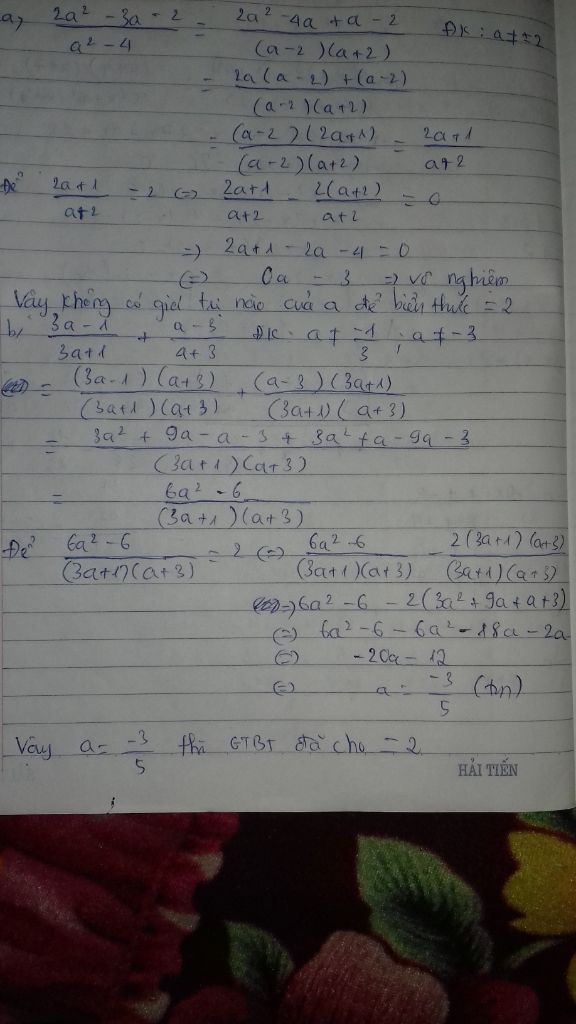 a, (2a² - 3a - 2)/(a² - 4) = (2a² - 4a + a - 2)/((a-2)(a+2)) ĐK: a ≠ ±2
= (2a(a-2) + (a-2))/((a-2)(a+2))
= ((a-2)(2a+1))/((a-2)(a+2)) = (2a+1)/(a+2)
Để (2a+1)/(a+2) = 2 <=> (2a+1)/(a+2) - (2(a+2))/(a+2) = 0
=> 2a+1 - 2a - 4 = 0
<=> 0a - 3 => vô nghiệm
Vậy không có giá trị nào của a để biểu thức = 2
b, (3a-1)/(3a+1) + (a-3)/(a+3) ĐK: a ≠ -1/3 ; a ≠ -3
= ((3a-1)(a+3))/((3a+1)(a+3)) + ((a-3)(3a+1))/((3a+1)(a+3))
= (3a² + 9a - a - 3 + 3a² + a - 9a - 3)/((3a+1)(a+3))
= (6a² - 6)/((3a+1)(a+3))
Để (6a² - 6)/((3a+1)(a+3)) = 2 <=> (6a² - 6)/((3a+1)(a+3)) - (2(3a+1)(a+3))/((3a+1)(a+3))
=> 6a² - 6 - 2(3a² + 9a + a + 3)
<=> 6a² - 6 - 6a² - 18a - 2a
<=> -20a - 12
<=> a = -3/5 (tm)
Vậy a = -3/5 thì GTBT đã cho = 2
HẢI TIẾN